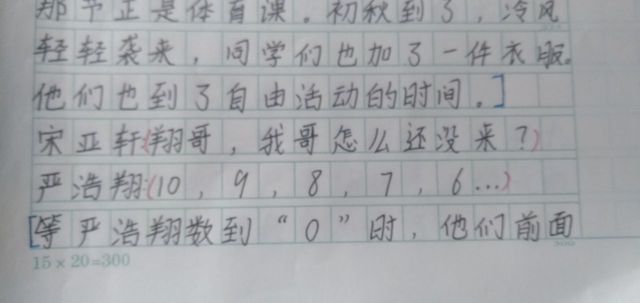 那节正是体育课。初秋到了，冷风
轻轻袭来，同学们也加了一件衣服。
他们也到了自由活动的时间。]
宋亚轩(翔哥，我哥怎么还没来？)
严浩翔(10，9，8，7，6...)
[等严浩翔数到“0”时，他们前面
15×20=300
300